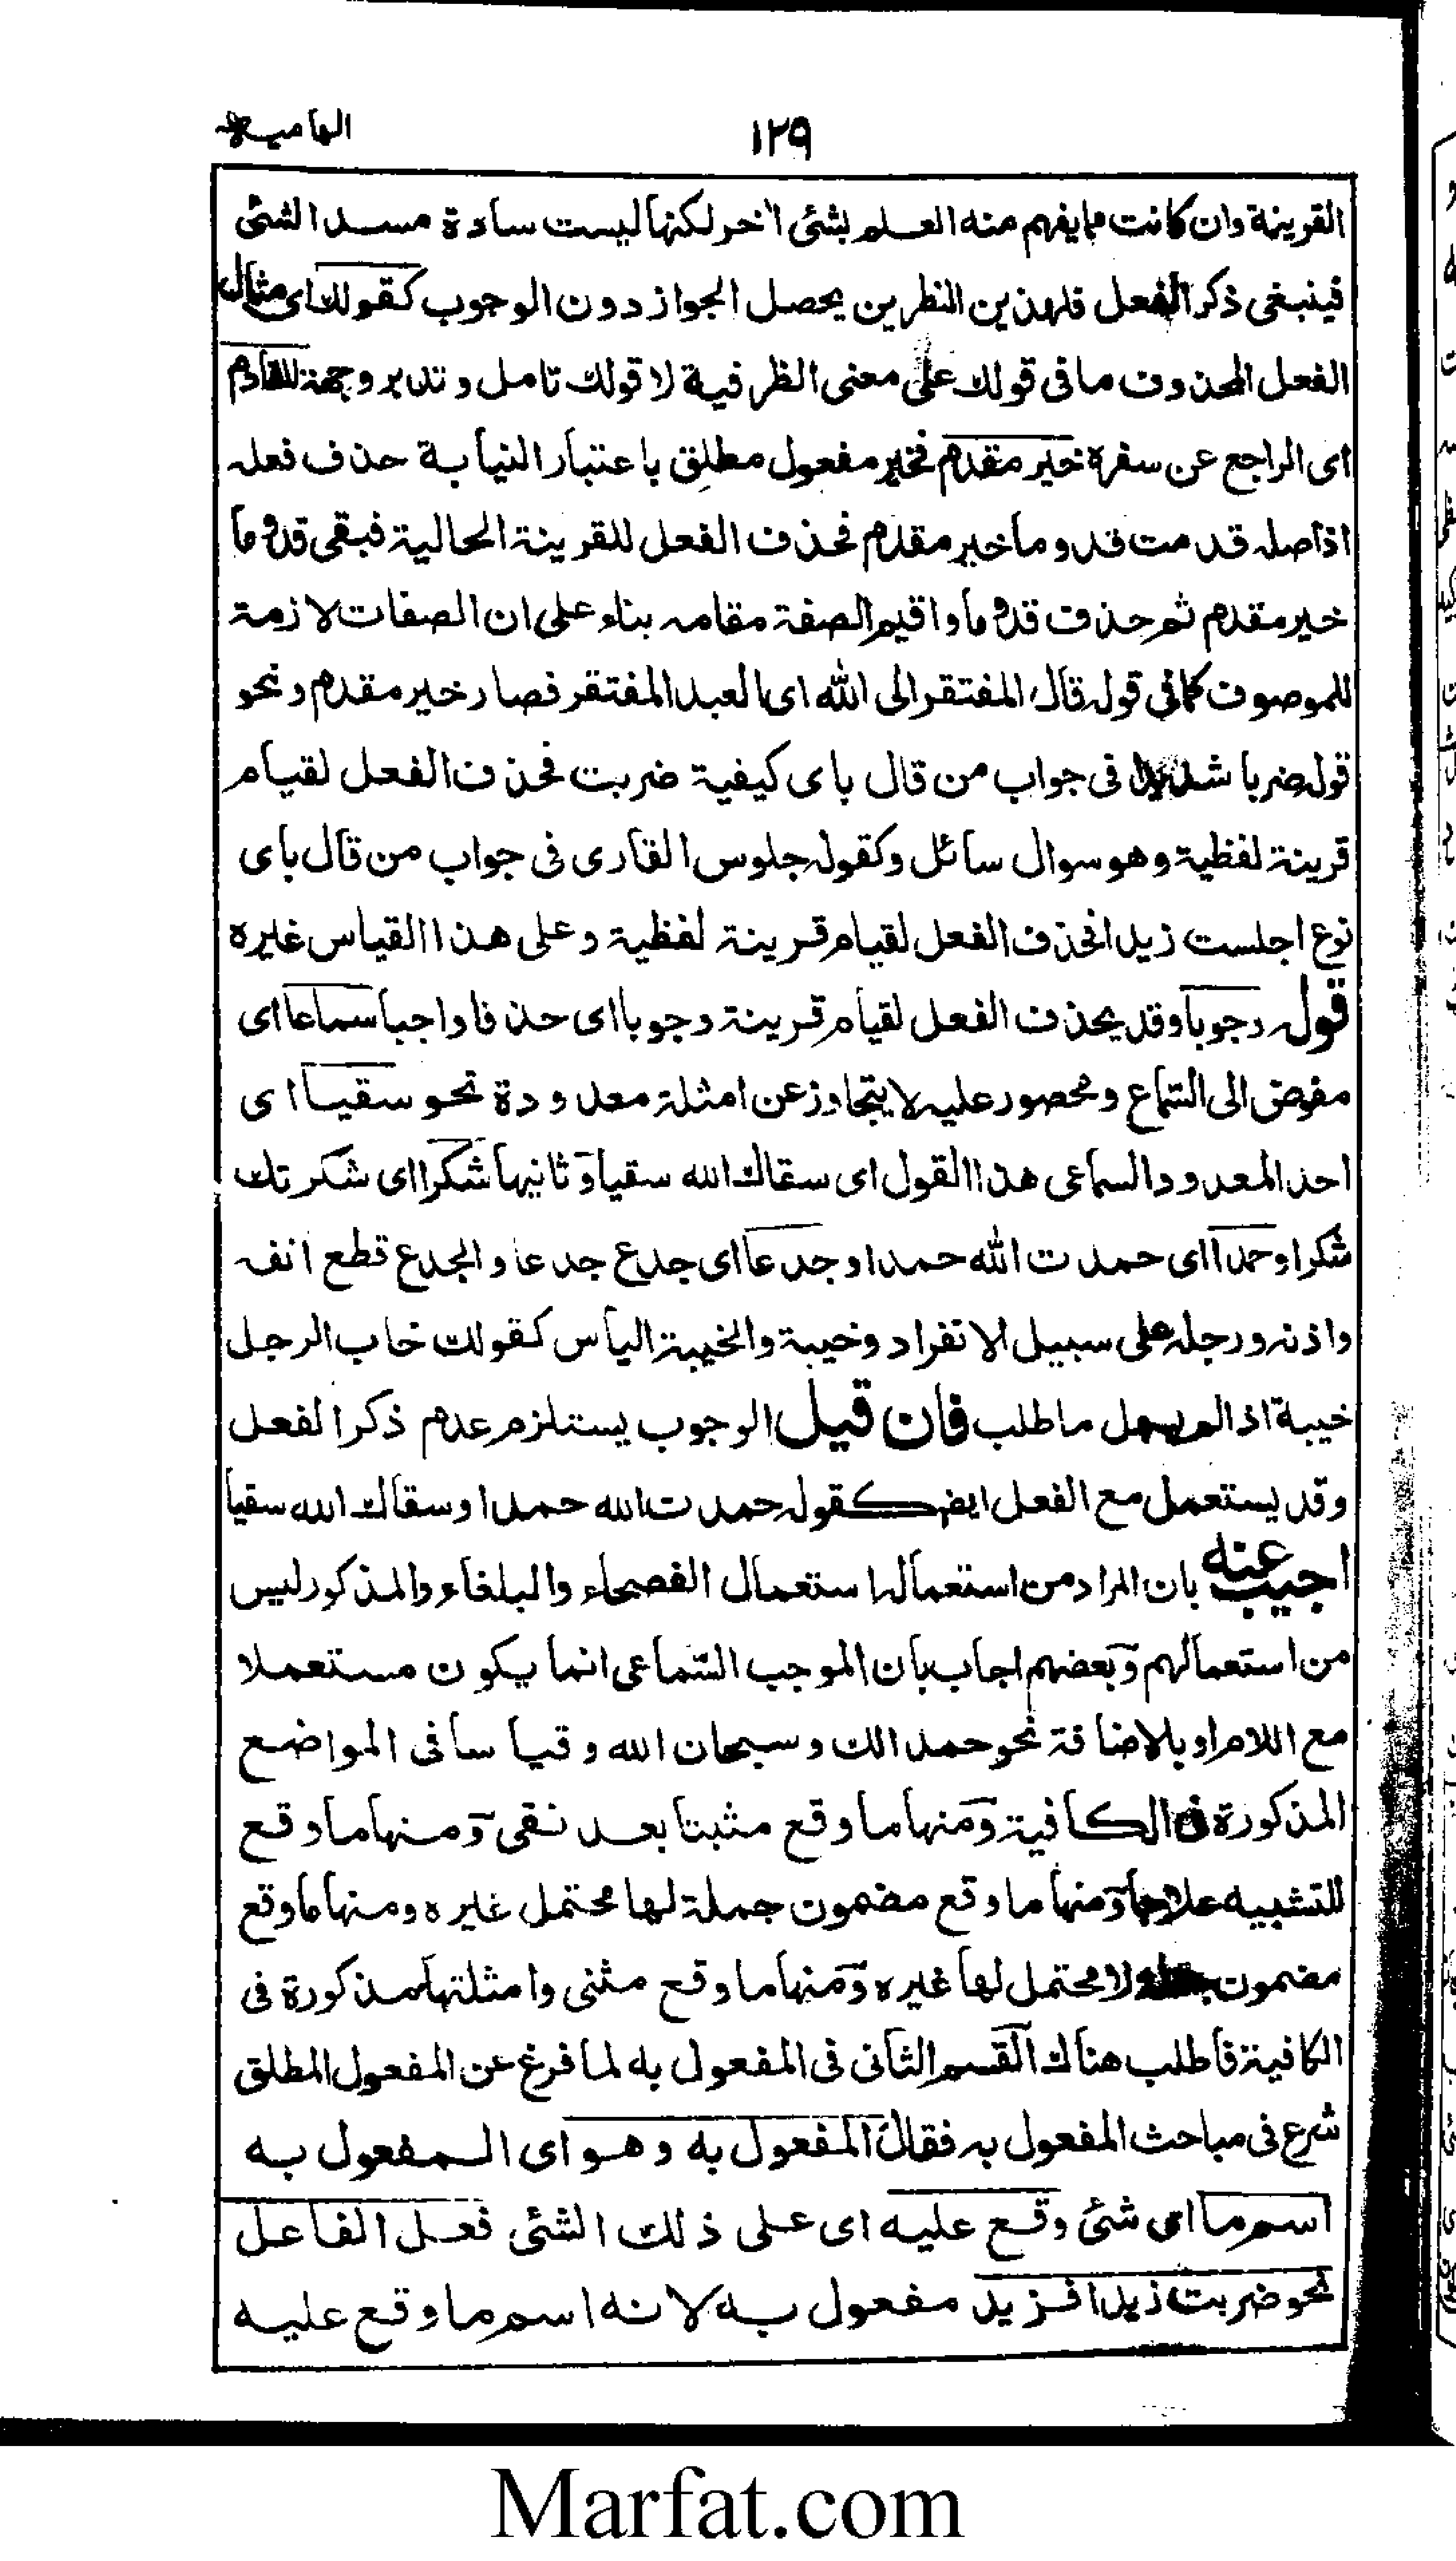 ١٢٩
القرينة وان كانت مما يفهم منه العلم بشئ اخر لكنها ليست سادة مسد الشئ
فينبغى ذكر الفعل فلهذين النظرين يحصل الجواز دون الوجوب كقولك اى مثال
الفعل المحذوف ما فى قولك على معنى الظرفية لا قولك تامل وتدبر وجهة للقادم
اى الراجع عن سفره خير مقدم فخير مفعول مطلق باعتبار النيابة حذف فعله
اذ اصله قدمت قدوما خير مقدم فحذف الفعل للقرينة الحالية فبقى قدوما
خير مقدم ثم حذف قدوما واقيم الصفة مقامه بناء على ان الصفات لازمة
للموصوف كما فى قوله قال المفتقر الى الله اى العبد المفتقر فصار خير مقدم ونحو
قوله ضربا شديدا فى جواب من قال باى كيفية ضربت فحذف الفعل لقيام
قرينة لفظية وهو سوال سائل وكقوله جلوس القارى فى جواب من قال باى
نوع اجلست زيدا فحذف الفعل لقيام قرينة لفظية وعلى هذا القياس غيره
قوله وجوبا وقد يحذف الفعل لقيام قرينة وجوبا اى حذفا واجبا سماعا اى
مفوض الى السماع ومحصور عليه لا يتجاوز عن امثلة معدودة نحو سقيا اى
احد المعدود السماعى هذا القول اى سقاك الله سقيا وثانيها شكرا اى شكرتك
شكرا وحمدا اى حمدت الله حمدا وجدعا اى جدع جدعا والجدع قطع انفه
واذنه ورجله على سبيل الانفراد وخيبة والخيبة الياس كقولك خاب الرجل
خيبة اذا لم ما طلب فان قيل الوجوب يستلزم عدم ذكر الفعل
وقد يستعمل مع الفعل ايضا كقوله حمدت الله حمدا وسقاك الله سقيا
اجيب عنه بان المراد من استعماله استعمال الفصحاء والبلغاء والمذكور ليس
من استعمالهم وبعضهم اجاب بان الموجب السماعى انما يكون مستعملا
مع اللام او بالاضافة نحو حمدا لك وسبحان الله وقياسا فى المواضع
المذكورة فى الكافية ومنها ما وقع مثبتا بعد نفى ومنها ما وقع
للتشبيه علاجا ومنها ما وقع مضمون جملة لها محتمل غيره ومنها ما وقع
مضمون جملة لا محتمل لها غيره ومنها ما وقع مثنى وامثلتها مذكورة فى
الكافية فاطلب هناك القسم الثانى فى المفعول به لما فرغ عن المفعول المطلق
شرع فى مباحث المفعول به فقال المفعول به وهو اى المفعول به
اسم ما اى شئ وقع عليه اى على ذلك الشئ فعل الفاعل
نحو ضربت زيدا فزيد مفعول به لانه اسم ما وقع عليه
Marfat.com